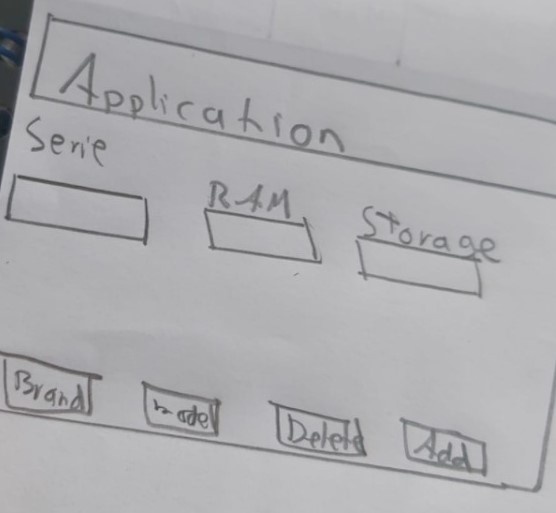 Application
Serie
RAM
Storage
Brand
model
Delete
Add